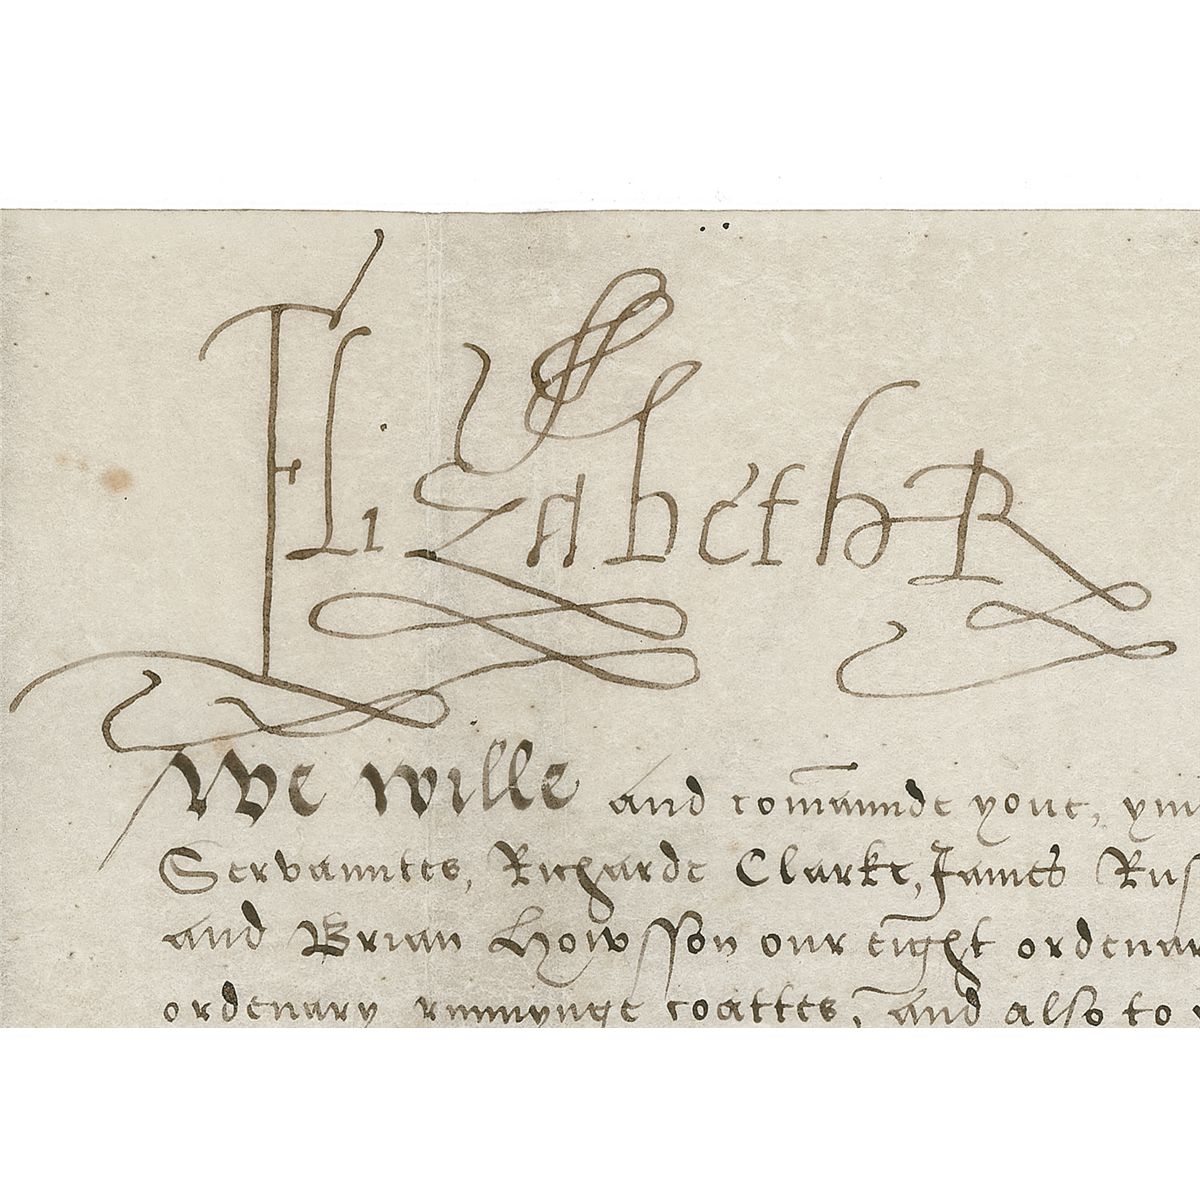 Elizabeth R
We wille and com̄aunde youe, ym
Servauntes, Richarde Clarke, James Rus
and Brian Howsson our eight ordenar
ordenary runnynge coattes, and also to